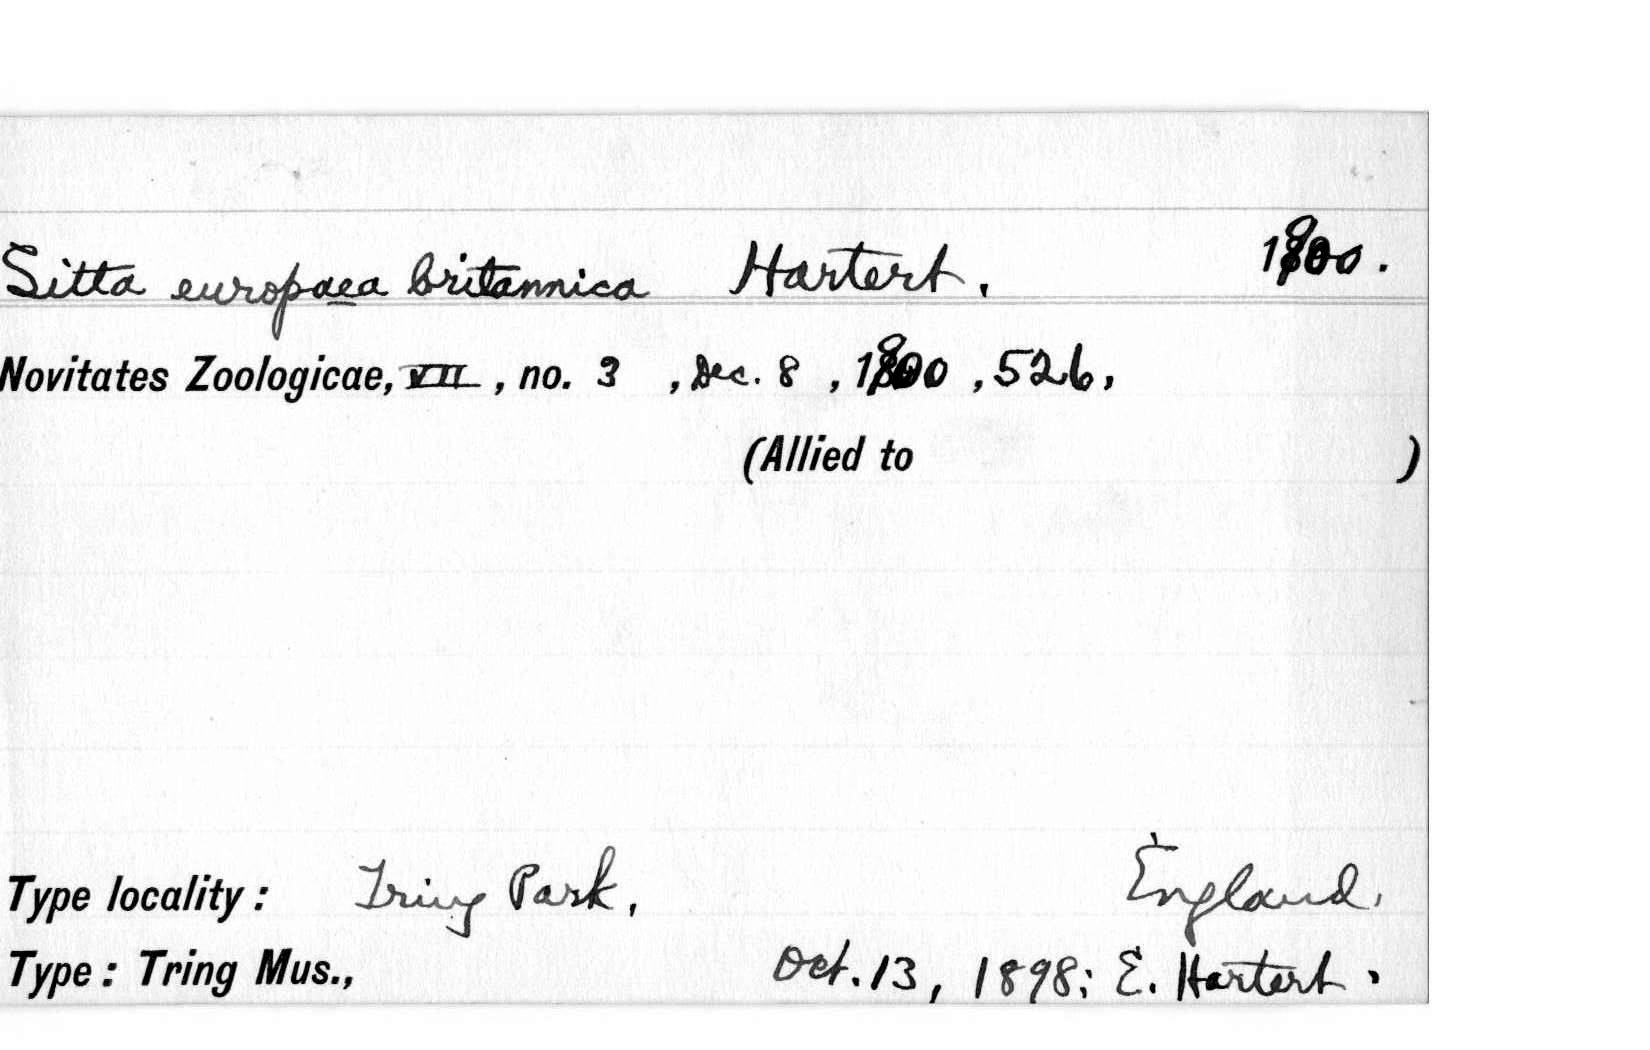 Sitta europaea britannica Hartert. 1900.
Novitates Zoologicae, VII, no. 3, Dec. 8, 1900, 526,
(Allied to )
Type locality: Tring Park, England.
Type: Tring Mus., Oct. 13, 1898; E. Hartert.